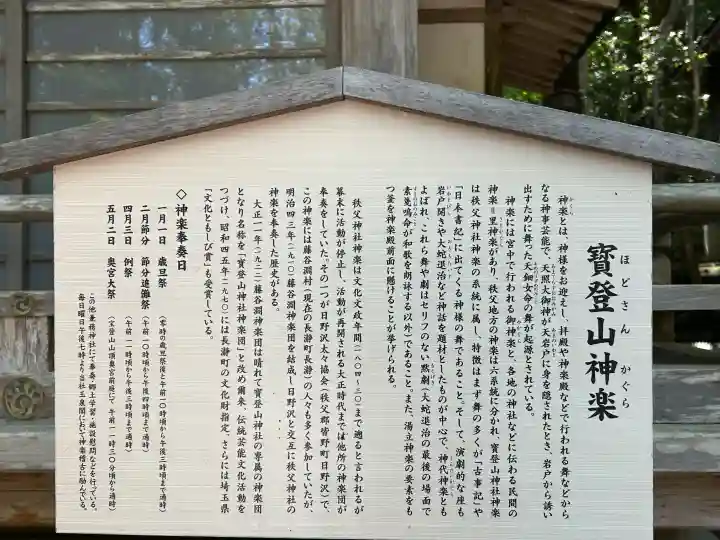 寳登山神楽
ほどさん かぐら
神楽とは、神様をお迎えし、拝殿や神楽殿などで行われる舞などから
なる神事芸能で、天照大御神が天岩戸に身を隠されたとき、岩戸から誘い
出すために舞った天鈿女命の舞が起源とされている。
神楽には宮中で行われる御神楽と、各地の神社などに伝わる民間の
神楽＝里神楽があり、秩父地方の神楽は六系統に分かれ、寳登山神社神楽
は秩父神社神楽の系統に属し、特徴はまず舞の多くが「古事記」や
「日本書紀」に出てくる神様の舞であること。そして、演劇的な座も
岩戸開きや大蛇退治など神話を題材としたものが中心で、神代神楽とも
よばれ、これら舞や劇はセリフのない黙劇（大蛇退治の最後の場面で
素戔嗚命が和歌を朗詠する以外）であること。また、湯立神楽の要素をも
つ釜を神楽殿前面に懸けることが挙げられる。
秩父神社神楽は文化文政年間（一八〇四～三〇）まで遡ると言われるが
幕末に活動が停止し、活動が再開される大正時代までは他所の神楽団が
奉奏をしていた。その一つが日野沢太々協会（秩父郡皆野町日野沢）で、
この神楽には藤谷淵村（現在の長瀞町長瀞）の人々も多く参加していたが、
明治四三年（一九一〇）藤谷淵神楽団を結成し日野沢と交互に秩父神社の
神楽を奉奏した歴史がある。
大正一一年（一九二二）藤谷淵神楽団は晴れて寳登山神社の専属の神楽団
となり名称を「寳登山神社神楽団」と改め爾来、伝統芸能文化活動を
つづけ、昭和四五年（一九七〇）には長瀞町の文化財指定、さらには埼玉県
「文化ともしび賞」も受賞している。
◇神楽奉奏日
一月一日 歳旦祭 （零時の歳旦祭後と午前一〇時頃から午後三時頃まで適時）
二月節分 節分追儺祭 （午前一〇時頃から午後四時頃まで適時）
四月三日 例祭 （午前一一時頃から午後三時頃まで適時）
五月二日 奥宮大祭 （宝登山山頂奥宮前庭にて 午前一一時三〇分頃から適時）
この他兼務神社にて奉奏・郷土学習・施設慰問などを行っている。
毎日曜日午後七時より当社玉泉閣において神楽稽古に励んでいる。